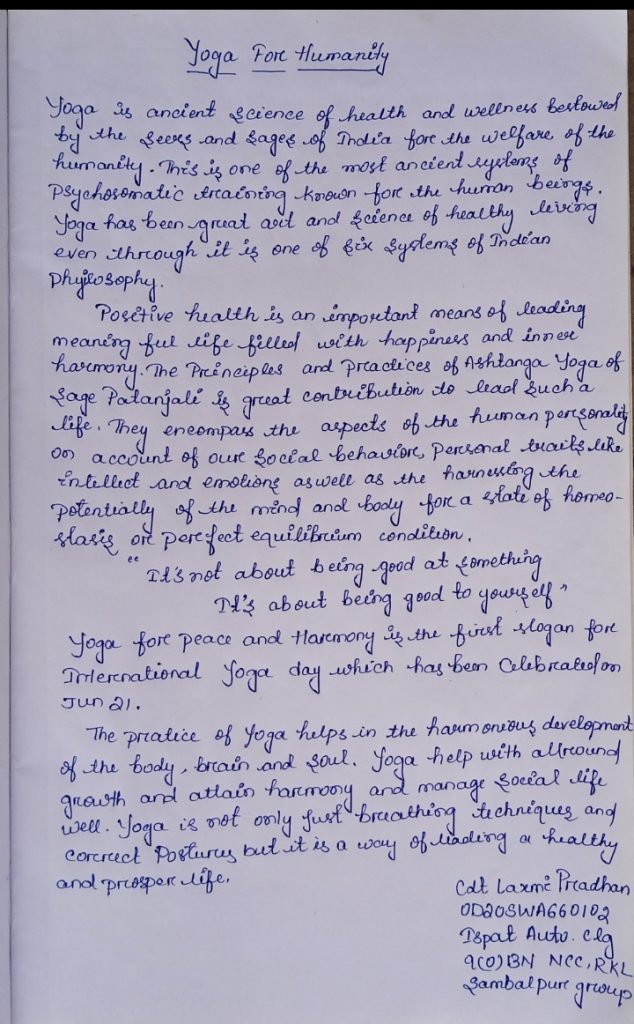 Yoga For Humanity
Yoga is ancient science of health and wellness bestowed
by the seers and sages of India for the welfare of the
humanity. This is one of the most ancient systems of
Psychosomatic training known for the human beings.
Yoga has been great art and science of healthy living
even through it is one of six systems of Indian
Phyilosophy.
Positive health is an important means of leading
meaning ful life filled with happiness and inner
harmony. The Principles and practices of Ashtanga Yoga of
Sage Patanjali is great contribution to lead such a
life. They encompass the aspects of the human personality
on account of our social behavior, personal traits like
intellect and emotions aswell as the harnessing the
potentially of the mind and body for a state of homeo-
stasis or perfect equilibrium condition.
"It's not about being good at something
It's about being good to yourself"
Yoga for peace and Harmony is the first slogan for
International Yoga day which has been Celebrated on
Jun 21.
The pratice of Yoga helps in the harmoneous development
of the body, brain and soul. Yoga help with allround
growth and attain harmony and manage social life
well. Yoga is not only just breathing techniques and
correct Postures but it is a way of leading a healthy
and prosper life.
Cdt Laxmi Pradhan
OD20SWA660102
Ispat Auto. clg
9(O)BN NCC, RKL
Sambalpur group